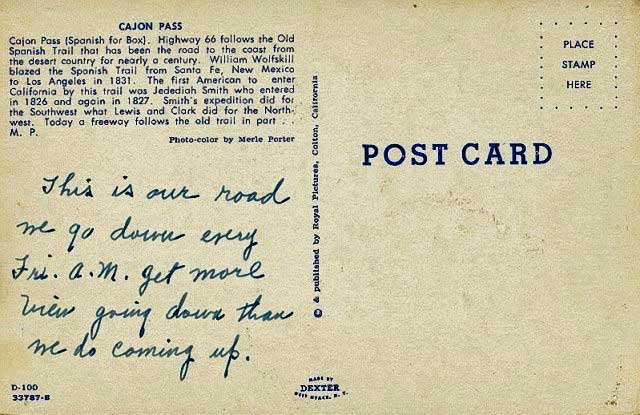 CAJON PASS
Cajon Pass (Spanish for Box). Highway 66 follows the Old
Spanish Trail that has been the road to the coast from
the desert country for nearly a century. William Wolfskill
blazed the Spanish Trail from Santa Fe, New Mexico
to Los Angeles in 1831. The first American to enter
California by this trail was Jedediah Smith who entered
in 1826 and again in 1827. Smith's expedition did for
the Southwest what Lewis and Clark did for the North-
west. Today a freeway follows the old trail in part . .
M. P.
Photo-color by Merle Porter
This is our road
we go down every
Fri. A.M. get more
view going down than
we do coming up.
D-100
33787-B
© & published by Royal Pictures, Colton, California
MADE BY
DEXTER
WEST NYACK, N. Y.
PLACE
STAMP
HERE
POST CARD